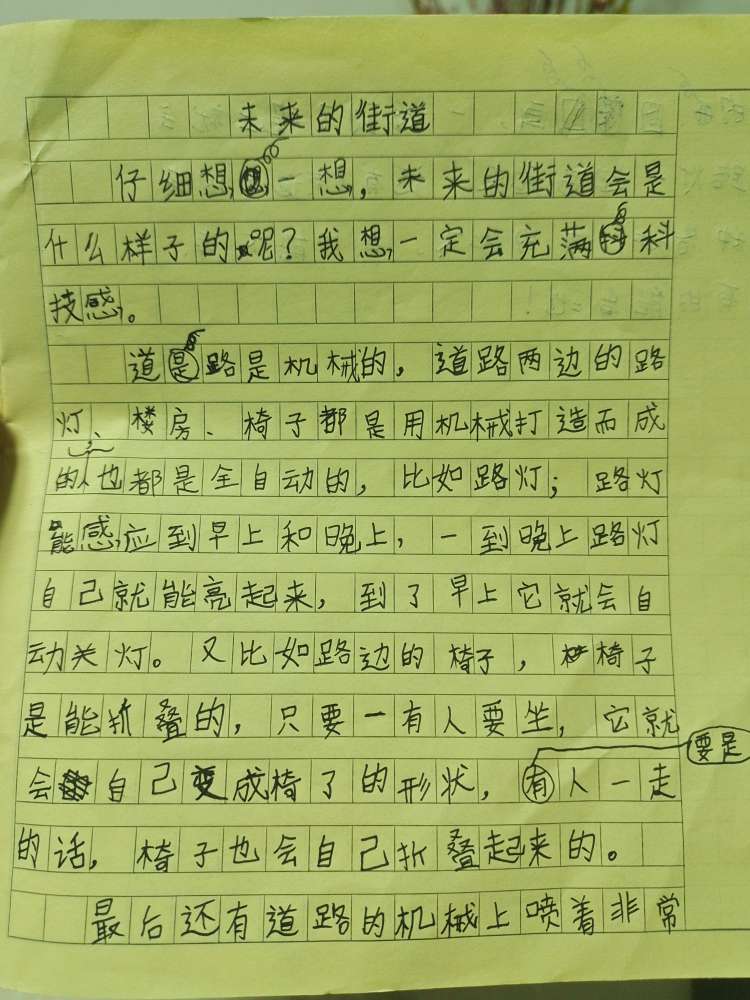 未来的街道
仔细想一想，未来的街道会是
什么样子的呢？我想一定会充满科
技感。
道路是机械的，道路两边的路
灯、楼房、椅子都是用机械打造而成
的，也都是全自动的，比如路灯；路灯
能感应到早上和晚上，一到晚上路灯
自己就能亮起来，到了早上它就会自
动关灯。又比如路边的椅子，椅子
是能折叠的，只要一有人要坐，它就
会自己变成椅子的形状，要是有人一走
的话，椅子也会自己折叠起来的。
最后还有道路的机械上喷着非常